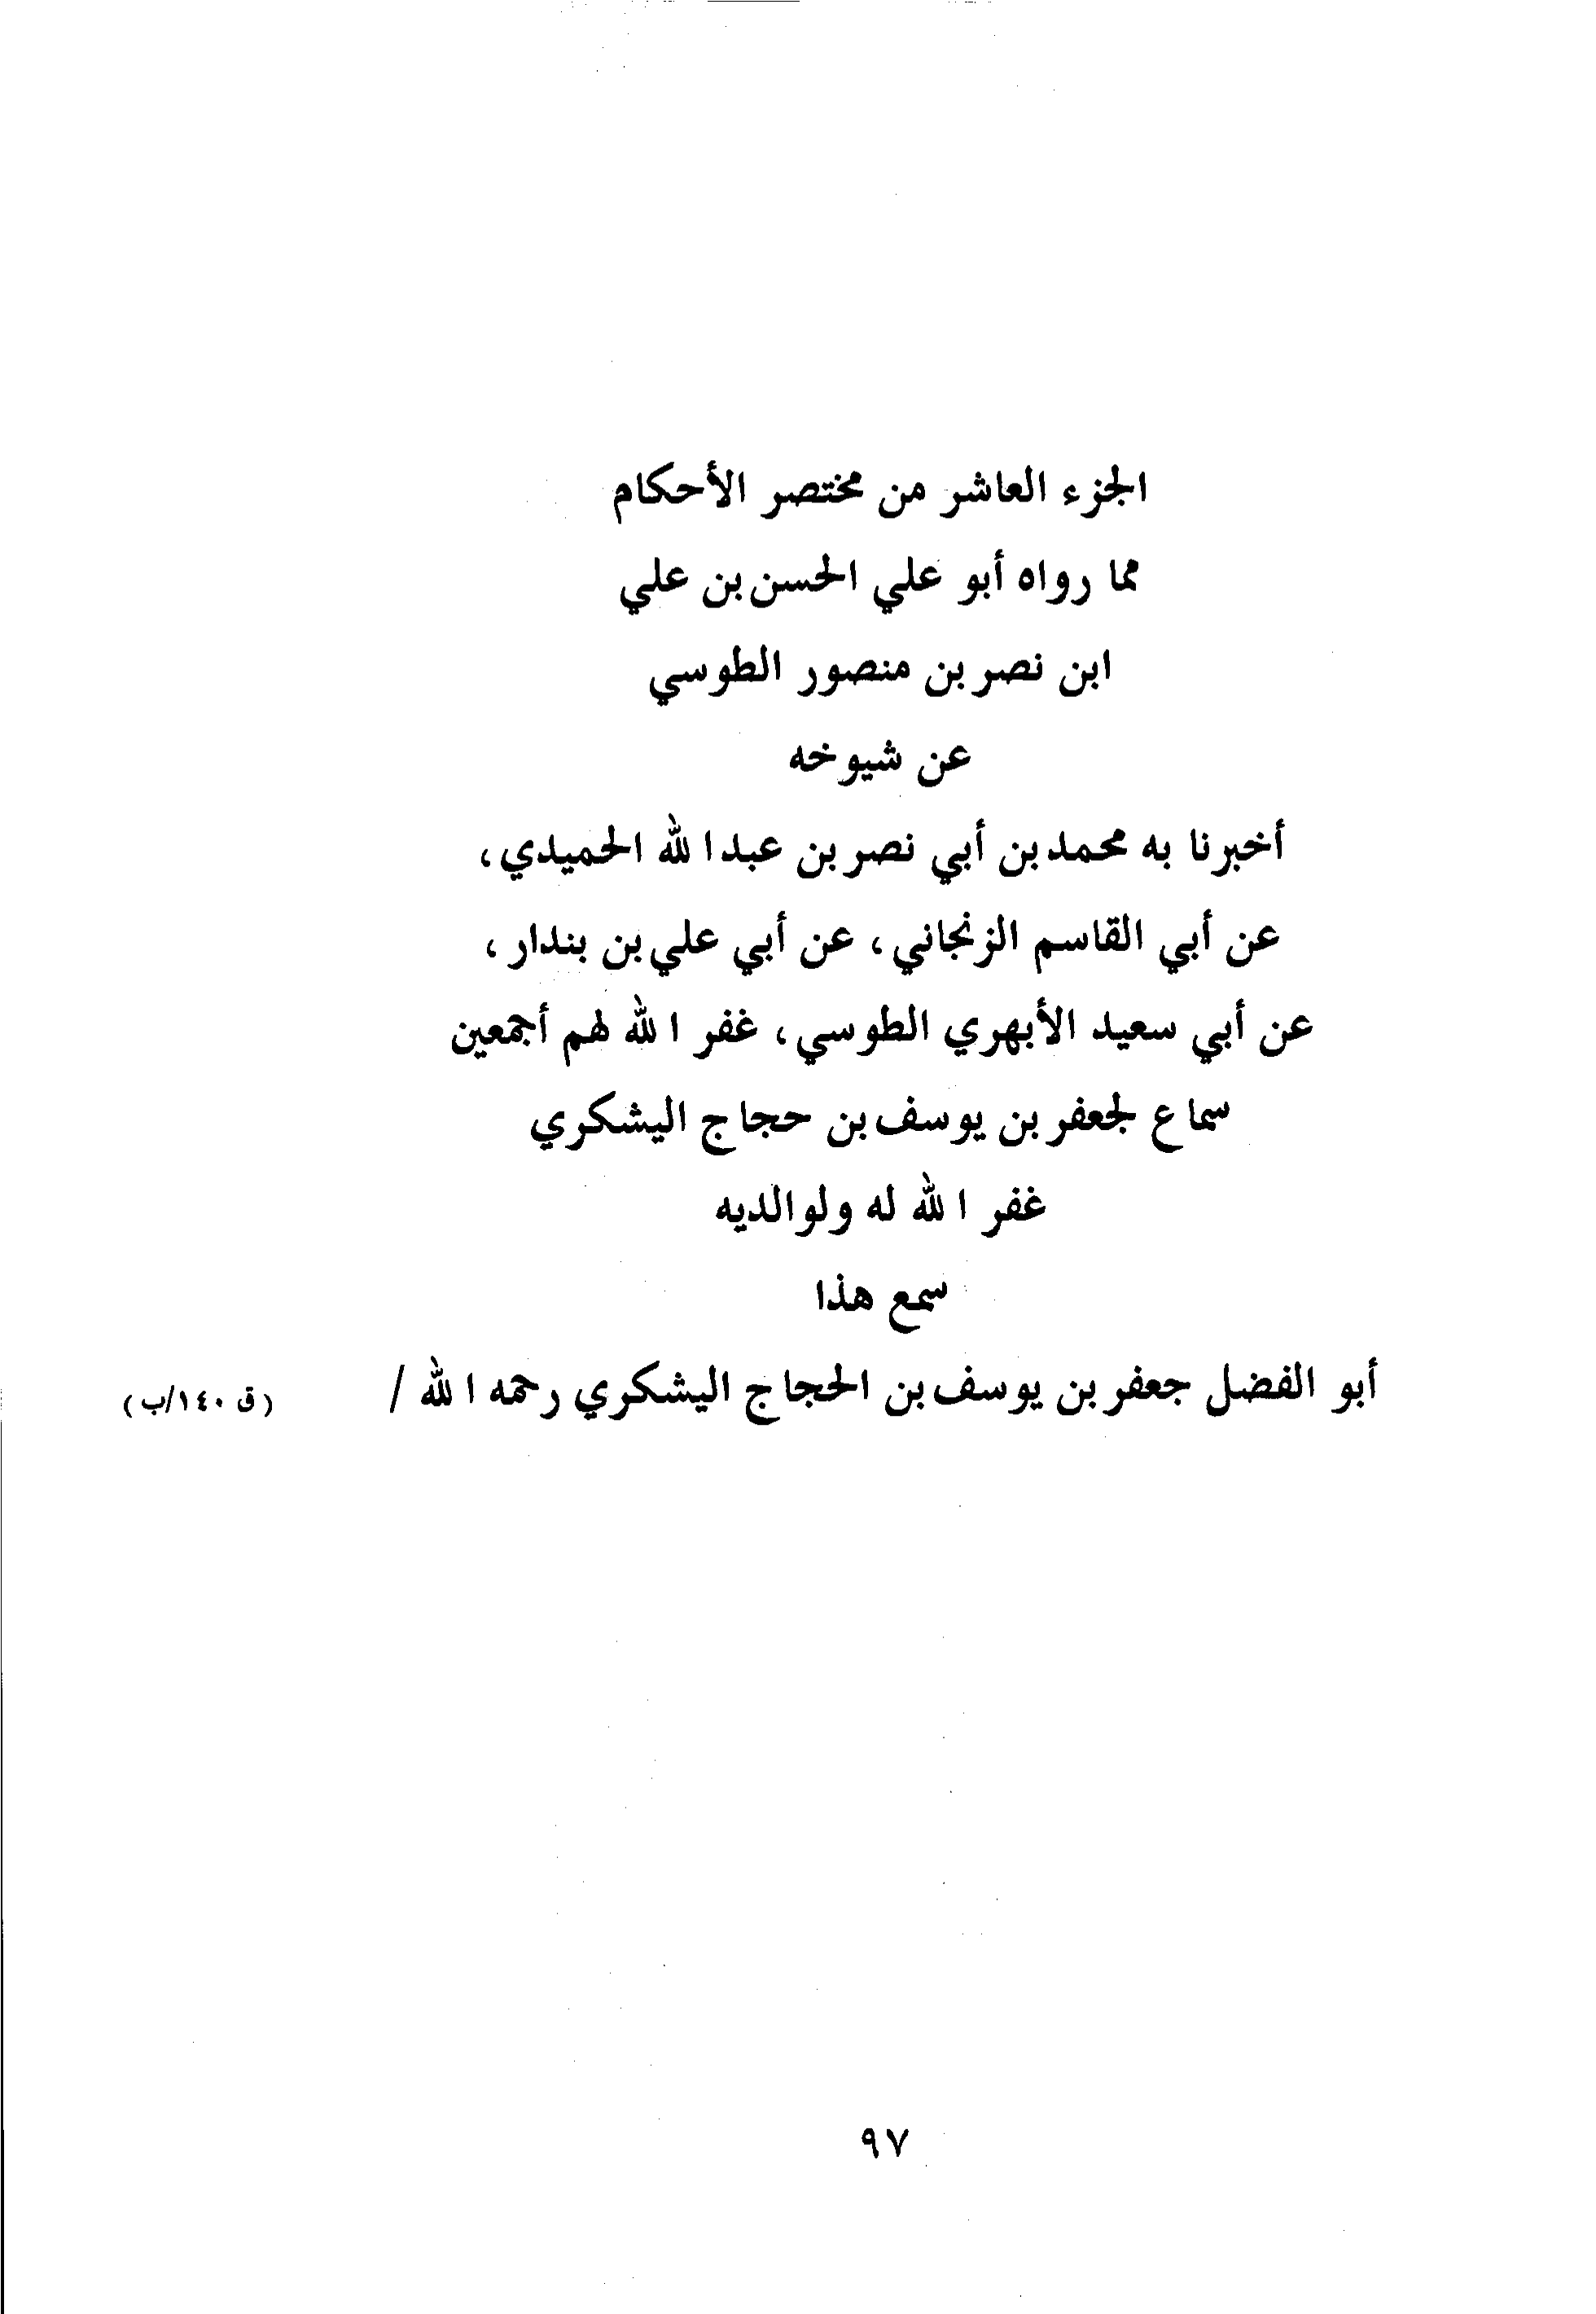 الجزء العاشر من مختصر الأحكام
مما رواه أبو علي الحسن بن علي
ابن نصر بن منصور الطوسي
عن شيوخه
أخبرنا به محمد بن أبي نصر بن عبدالله الحميدي،
عن أبي القاسم الزنجاني، عن أبي علي بن بندار،
عن أبي سعيد الأبهري الطوسي، غفر الله لهم أجمعين
سماع لجعفر بن يوسف بن حجاج اليشكري
غفر الله له ولوالديه
سمع هذا
أبو الفضل جعفر بن يوسف بن الحجاج اليشكري رحمه الله / (ق ١٤٠/ب)
٩٧